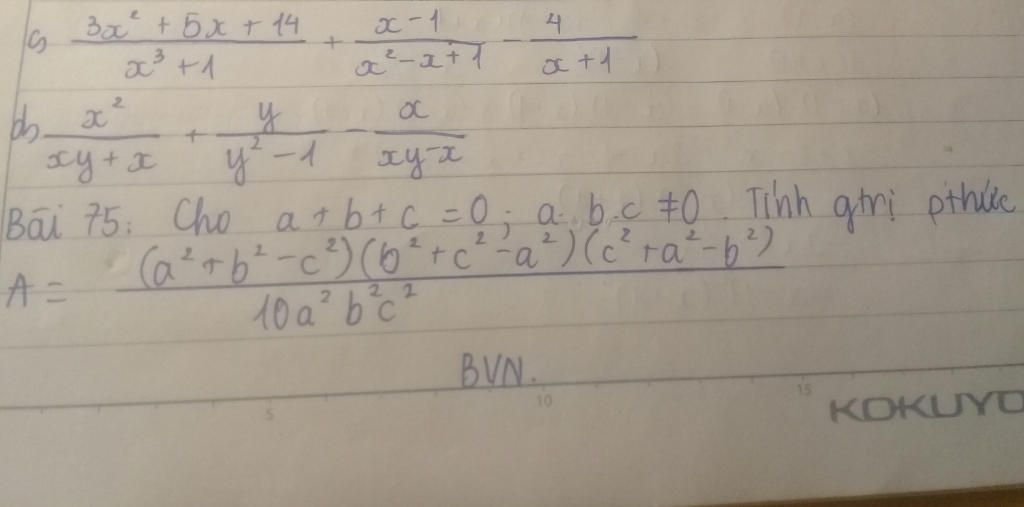 c) (3x² + 5x + 14)/(x³ + 1) + (x - 1)/(x² - x + 1) - 4/(x + 1)
d) x²/(xy + x) + y/(y² - 1) - x/(xy - x)
Bài 75: Cho a + b + c = 0; a.b.c ≠ 0. Tính gtrị pthức
A = (a² + b² - c²)(b² + c² - a²)(c² + a² - b²)/(10a²b²c²)
BVN.
5 10 15
KOKUYO